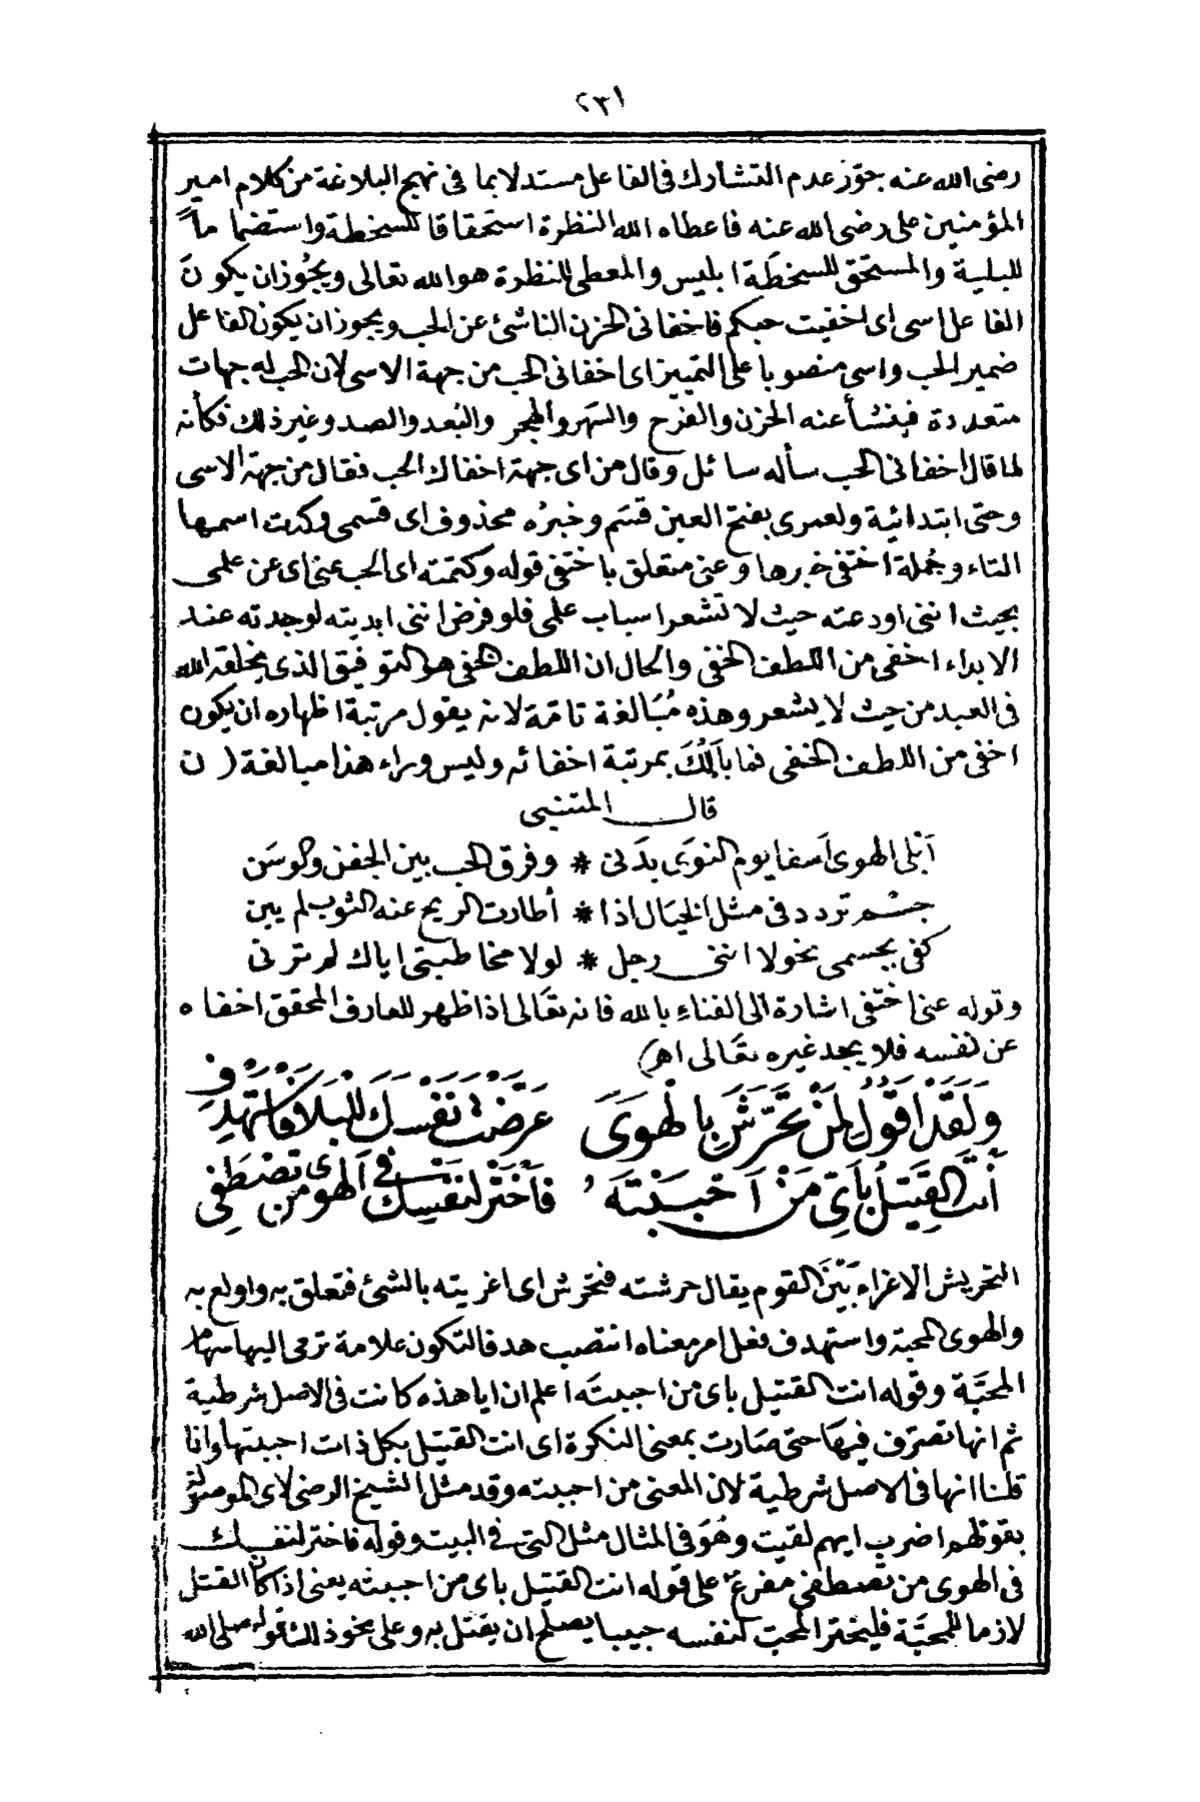 ٢٣١
رضى الله عنه جوّز عدم التشارك فى الفاعل مستدلا بما فى نهج البلاغة من كلام امير
المؤمنين على رضى الله عنه فاعطاه الله النظرة استحقاقا للسخطة واستضماماً
للبلية والمستحق للسخطَة ابليس والمعطى للنظرة هو الله تعالى ويجُوز ان يكونَ
الفاعل اسى اى اخفيت حبكم فاخفانى الحزن الناشئ عن الحب ويجوز ان يكون الفاعل
ضمير الحب واسى منصوبا على التمييز اى اخفانى الحب من جهة الاسى لان الحب له جهات
متعددة فينشأ عنه الحزن والفرَح والسَهر والهجر والبُعد والصد وغير ذلك فكأنه
لما قال اخفانى الحب سأله سائل وقال من اى جهة اخفاك الحب فقال من جهة الاسى
وحتى ابتدائية ولعمرى بفتح العين قسَم وخبرُه محذوف اى قسمى وكدت اسمها
التاء وجُملة اختفى خبرها وعنى متعلق باختفى قوله وكتمته اى الحب عنى اى عن علمى
بحيث اننى اودعته حيث لا تشعر اسباب علمى فلو فرض اننى ابديته لوجدته عند
الابداء اخفى من اللطف الخفى والحال ان اللطف الخفى هو التوفيق الذى يخلقه الله
فى العبد من حيث لا يشعر وهذه مُبَالغة تامّة لانه يقول مرتبة اظهاره ان يكون
اخفى من اللطف الخفى فما بَالُكَ بمرتبة اخفائه وليس وراء هذا مبالغة (ن
قال المتنبى
اَبْلى الهوى اَسفا يوم النوَى بدَنى * وفرق الحب بين الجفن والوسَن
جسْم تردد فى مثل الخيَال اذا * أطارت الريح عنه الثوب لم يبن
كفى بجسمى نحولا اننى رجل * لولا مخاطبتى اياك لم ترنى
وقوله عنى اختفى اشارة الى الفناء بالله فانه تعَالى اذا ظهر للعارف المحقق اخفاه
عن نفسه فلا يجد غيره تعَالى اهـ)
وَلَقَدْ اَقُولُ لِمَنْ تَحَرَّشَ بِالْهَوَى عَرَّضْتَ نَفْسَكَ لِلْبَلَا فَاسْتَهْدِفِ
أَنْتَ الْقَتِيْلُ بِأَىِّ مَنْ اَحْبَبْتَهُ فَاَخْتَرْ لِنَفْسِكَ فِى الْهَوى مَنْ تَصْطَفِى
التحريش الاغراء بَيْنَ القوم يقال حرشته فتحرش اى اغريته بالشئ فتعلق به واولع به
والهوى المحبة واستهدف فعل امر معناه انتصب هدفا لتكون علامة ترمى اليها سهام
المحبَّة وقوله انت القتيل باى من احببتَه اعلم ان ايا هذه كانت فى الاصْل شرطية
ثم انها تصَرّف فيهَا حتى صَارت بمعنى النكرة اى انت القتيل بكل ذات احببتها وانما
قلنا انها فى الاصل شرطية لان المعنى من احببته وقد مثل الشيخ الرضى لاى الموصولة
بقولهم اضرب ايهم لقيت وهُوَ فى المثال مثل التى فى البيت وقوله فاختر لنفسك
فى الهوى من تصطفى مفرع على قوله انت القتيل باى من احببته يعنى اذا كان القتل
لازما للمحبَّة فليختر المحب لنفسه حبيبا يصلح ان يقتل به وعلى نحو ذلك قوله صلى الله